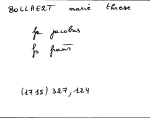 BOLLAERT marie threse
fa jacobus
fa frans
(1715) 327, 124